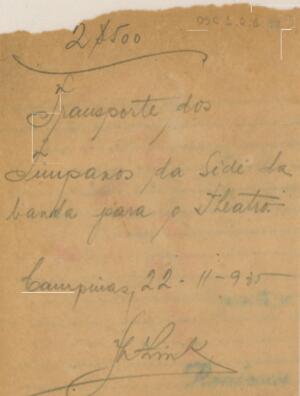 2$500
Transporte dos
Timpanos da Séde da
banda para o Theatro.
Campinas, 22-11-935